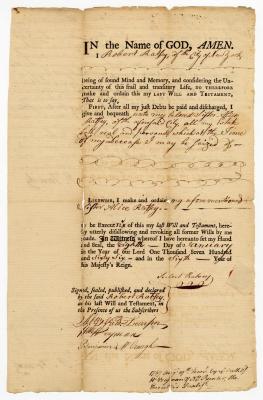 IN the Name of GOD, AMEN.
I Robert Raffey, of the City of New York
being of sound Mind and Memory, and considering the Un-
certainty of this frail and transitory Life, do THEREFORE
make and ordain this my LAST WILL AND TESTAMENT,
That is to say,
FIRST, After all my just Debts be paid and discharged, I
give and bequeath unto my beloved Sister Alice
Raffey, of the aforesaid City, all my Estate
both real and personal which at the Time
of my decease I may be seized of
LIKEWISE, I make and ordain my aforementioned
Sister Alice Raffey
to be EXECUTRIX of this my last Will and Testament, here-
by utterly disallowing and revoking all former Wills by me
made. In Witness whereof I have hereunto set my Hand
and Seal, the Eighth Day of January
in the Year of our Lord One Thousand Seven Hundred
and Sixty Six and in the Sixth Year of
his Majesty's Reign.
Robert Raffey
Signed, sealed, published, and declared
by the said Robert Raffey
as his last Will and Testament, in
the Presence of us the Subscribers
Wm Wyman
Benjamin